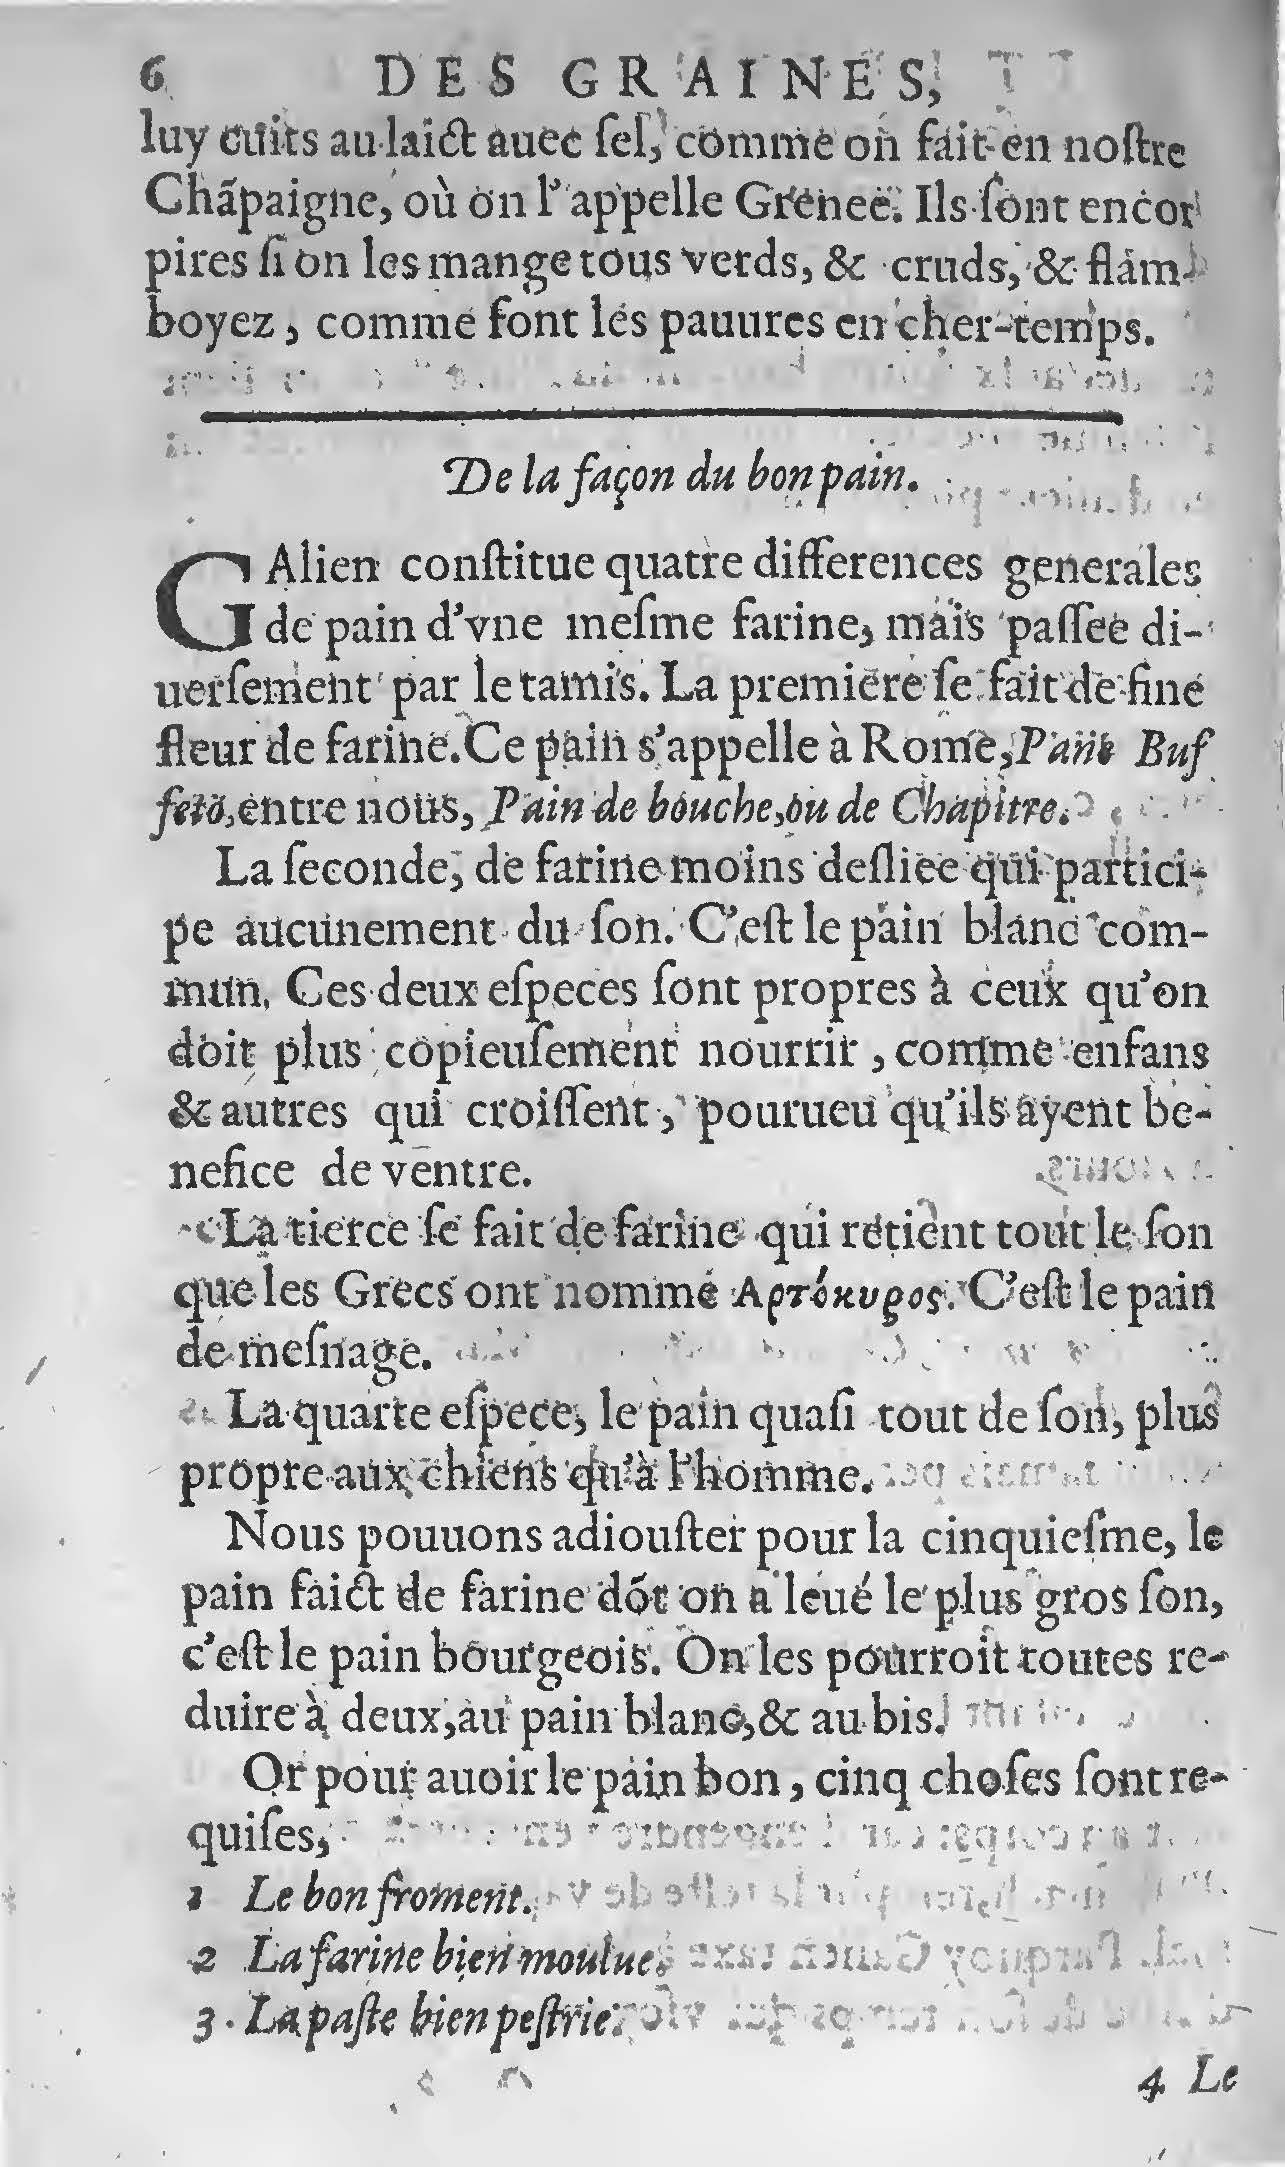 6 DES GRAINES,
luy cuits au laict auec ſel, comme on fait en noſtre
Chãpaigne, où on l'appelle Greneë. Ils ſont encor
pires ſi on les mange tous verds, & cruds, & flam-
boyez, comme font les pauures en cher-temps.
De la façon du bon pain.
GAlien conſtitue quatre differences generales
de pain d'vne meſme farine, mais paſſee di-
uerſement par le tamis. La premiere ſe fait de fine
fleur de farine. Ce pain s'appelle à Rome, Pane Buf
feto, entre nous, Pain de bouche, ou de Chapitre.
La ſeconde, de farine moins deſliee qui partici-
pe aucunement du ſon. C'eſt le pain blanc com-
mun. Ces deux eſpeces ſont propres à ceux qu'on
doit plus copieuſement nourrir, comme enfans
& autres qui croiſſent, pourueu qu'ils ayent be-
nefice de ventre.
La tierce ſe fait de farine qui retient tout le ſon
que les Grecs ont nommé Αρτόκυρος. C'eſt le pain
de meſnage.
La quarte eſpece, le pain quaſi tout de ſon, plus
propre aux chiens qu'à l'homme.
Nous pouuons adiouſter pour la cinquieſme, le
pain faict de farine dõt on a leué le plus gros ſon,
c'eſt le pain bourgeois. On les pourroit toutes re-
duire à deux, au pain blanc, & au bis.
Or pour auoir le pain bon, cinq choſes ſont re-
quiſes,
1 Le bon froment.
2 La farine bien moulue.
3. La paſte bien peſtrie.
4 Le